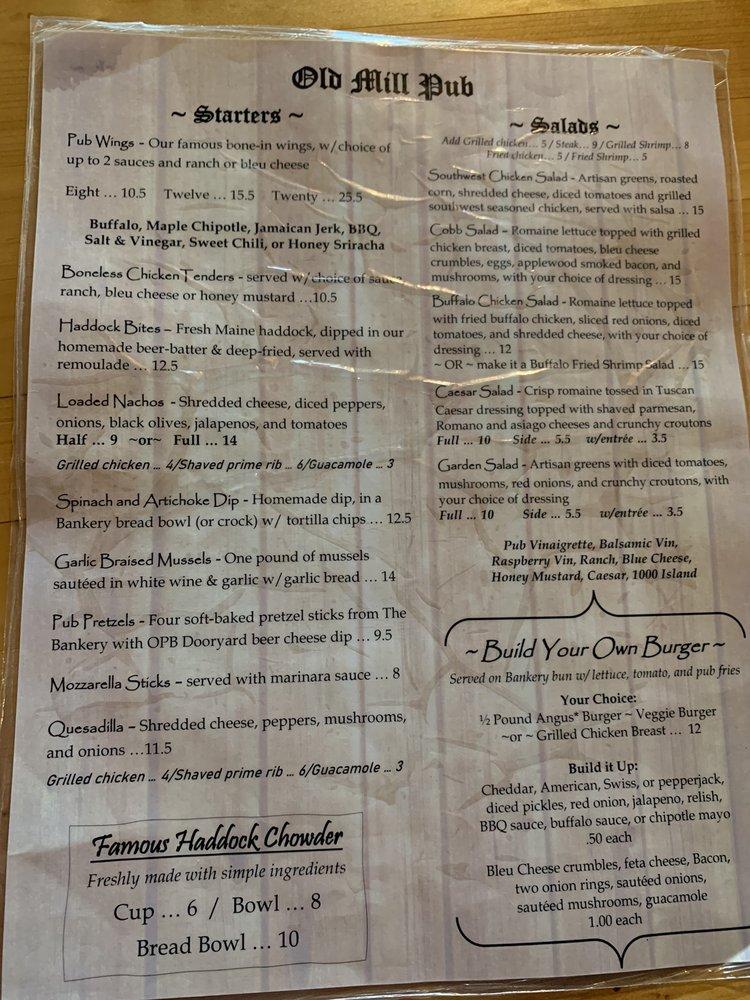 Old Mill Pub
~ Starters ~
Pub Wings - Our famous bone-in wings, w/choice of
up to 2 sauces and ranch or bleu cheese
Eight ... 10.5 Twelve ... 15.5 Twenty ... 25.5
Buffalo, Maple Chipotle, Jamaican Jerk, BBQ,
Salt & Vinegar, Sweet Chili, or Honey Sriracha
Boneless Chicken Tenders - served w/choice of sauce
ranch, bleu cheese or honey mustard ...10.5
Haddock Bites – Fresh Maine haddock, dipped in our
homemade beer-batter & deep-fried, served with
remoulade ... 12.5
Loaded Nachos - Shredded cheese, diced peppers,
onions, black olives, jalapenos, and tomatoes
Half ... 9 ~or~ Full ... 14
Grilled chicken ... 4/Shaved prime rib ... 6/Guacamole ... 3
Spinach and Artichoke Dip - Homemade dip, in a
Bankery bread bowl (or crock) w/ tortilla chips ... 12.5
Garlic Braised Mussels - One pound of mussels
sautéed in white wine & garlic w/garlic bread ... 14
Pub Pretzels - Four soft-baked pretzel sticks from The
Bankery with OPB Dooryard beer cheese dip ... 9.5
Mozzarella Sticks – served with marinara sauce ... 8
Quesadilla – Shredded cheese, peppers, mushrooms,
and onions ...11.5
Grilled chicken ... 4/Shaved prime rib ... 6/Guacamole ... 3
Famous Haddock Chowder
Freshly made with simple ingredients
Cup ... 6 / Bowl ... 8
Bread Bowl ... 10
~ Salads ~
Add Grilled chicken... 5 / Steak... 9 / Grilled Shrimp... 8
Fried chicken... 5 / Fried Shrimp... 5
Southwest Chicken Salad - Artisan greens, roasted
corn, shredded cheese, diced tomatoes and grilled
southwest seasoned chicken, served with salsa ... 15
Cobb Salad - Romaine lettuce topped with grilled
chicken breast, diced tomatoes, bleu cheese
crumbles, eggs, applewood smoked bacon, and
mushrooms, with your choice of dressing ... 15
Buffalo Chicken Salad - Romaine lettuce topped
with fried buffalo chicken, sliced red onions, diced
tomatoes, and shredded cheese, with your choice of
dressing ... 12
~ OR ~ make it a Buffalo Fried Shrimp Salad ... 15
Caesar Salad - Crisp romaine tossed in Tuscan
Caesar dressing topped with shaved parmesan,
Romano and asiago cheeses and crunchy croutons
Full ... 10 Side ... 5.5 w/entrée ... 3.5
Garden Salad - Artisan greens with diced tomatoes,
mushrooms, red onions, and crunchy croutons, with
your choice of dressing
Full ... 10 Side ... 5.5 w/entrée ... 3.5
Pub Vinaigrette, Balsamic Vin,
Raspberry Vin, Ranch, Blue Cheese,
Honey Mustard, Caesar, 1000 Island
~ Build Your Own Burger ~
Served on Bankery bun w/ lettuce, tomato, and pub fries
Your Choice:
½ Pound Angus* Burger ~ Veggie Burger
~or ~ Grilled Chicken Breast ... 12
Build it Up:
Cheddar, American, Swiss, or pepperjack,
diced pickles, red onion, jalapeno, relish,
BBQ sauce, buffalo sauce, or chipotle mayo
.50 each
Bleu Cheese crumbles, feta cheese, Bacon,
two onion rings, sautéed onions,
sautéed mushrooms, guacamole
1.00 each